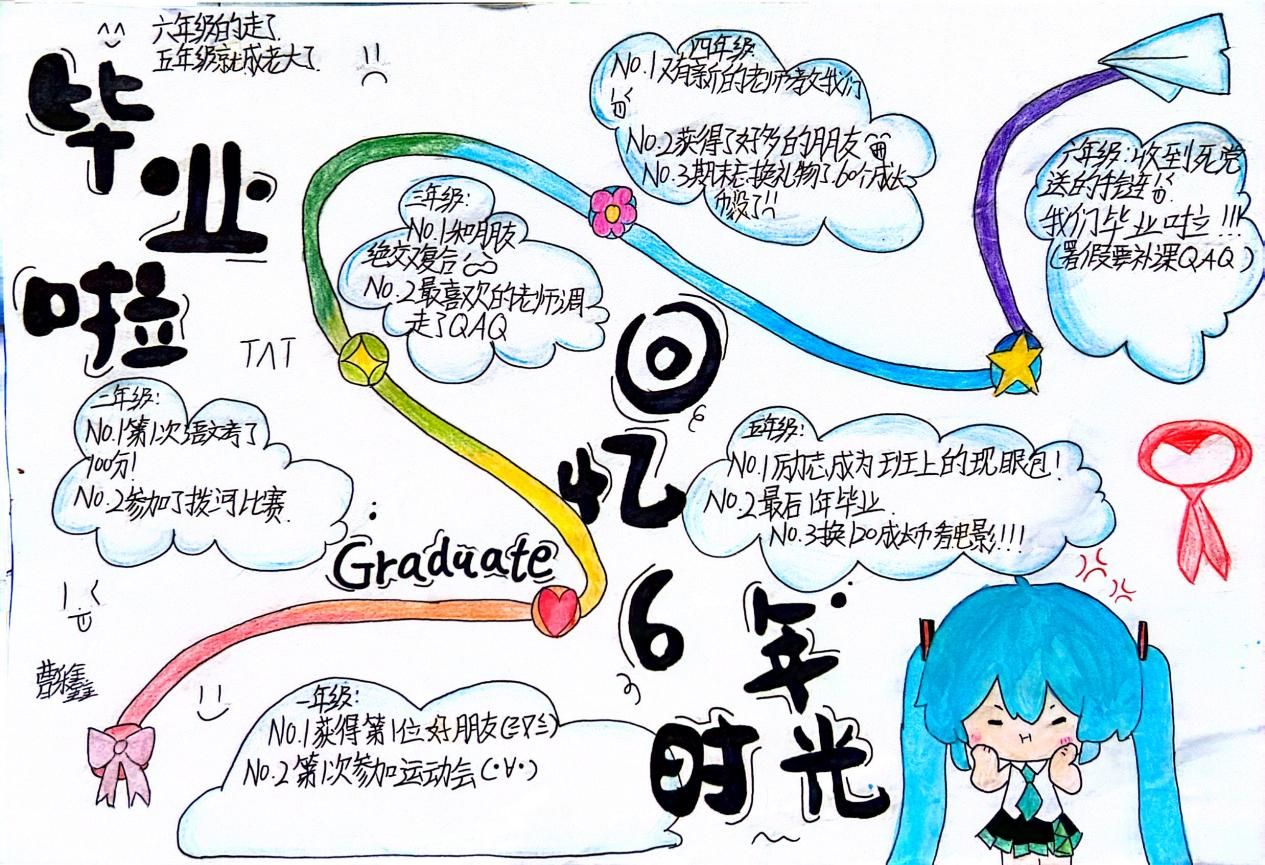 六年级的走了
五年级就成老大了
毕
业
啦
TAT
四年级
No.1又有新的老师教我们
No.2获得了好多的朋友
No.3期末志换礼物了60个成长
币没了
六年级:收到死党
送的手链
我们毕业啦!!!
(暑假要补课QAQ)
三年级:
No.1和朋友
绝交又复合
No.2最喜欢的老师调
走了QAQ
二年级:
No.1第1次语文考了
100分!
No.2参加了拨河比赛
五年级:
No.1励志成为班上的现眼包!
No.2最后1年毕业
No.3换120成长币看电影!!!
Graduate
回
忆
6年
时光
一年级:
No.1获得第1位好朋友
No.2第1次参加运动会(·∀·)